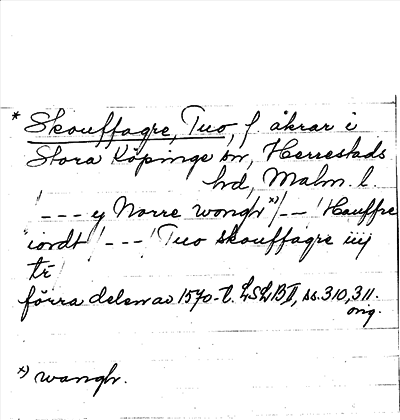 * Skouffagre, Tuo, f. åkrar i
Stora Köpinge sn, Herrestads
hd, Malm. l.
! --- y Norre wongh x) !--! Hauffre
iordt !---! Tuo skouffagre iiij
tr
förra delen av 1570-t. LSLB II, ss. 310, 311.
orig.
x) wangh.